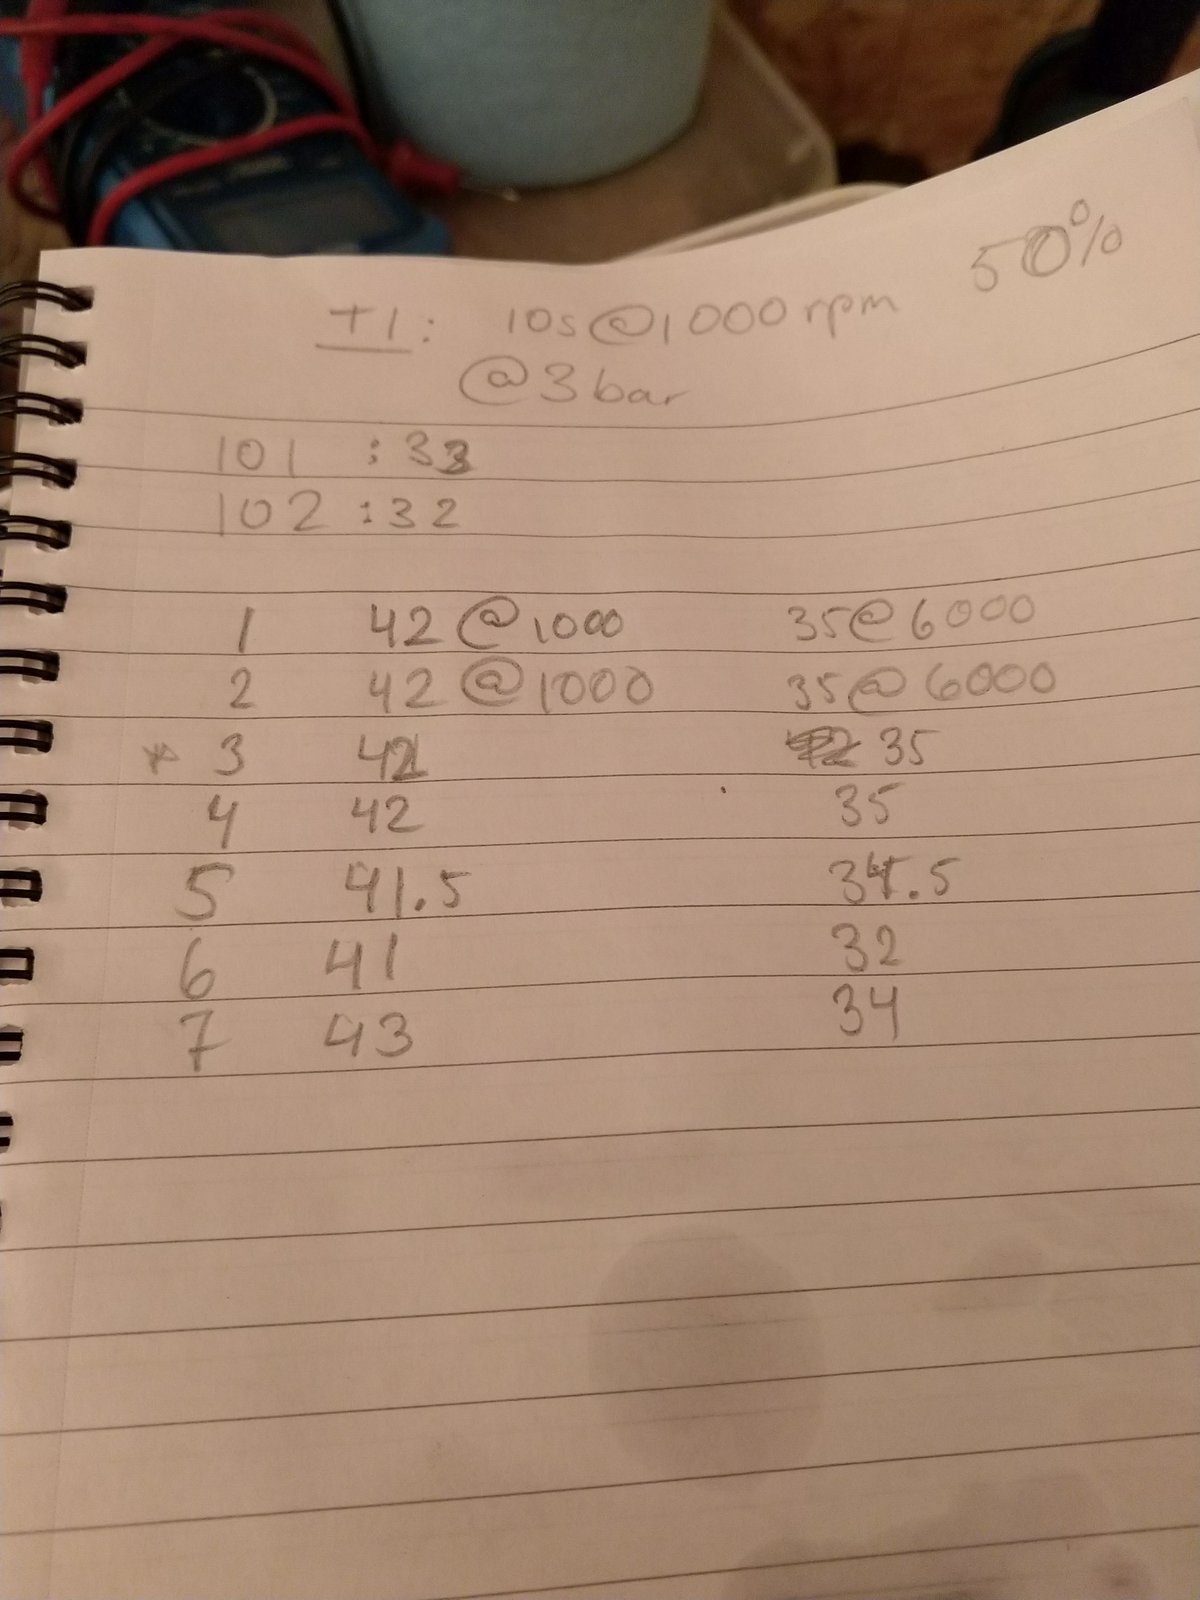 50%
T1: 10s@1000rpm
@3bar
101 :33
102 :32
1 42@1000 35@6000
2 42@1000 35@6000
* 3 42 35
4 42 35
5 41.5 34.5
6 41 32
7 43 34